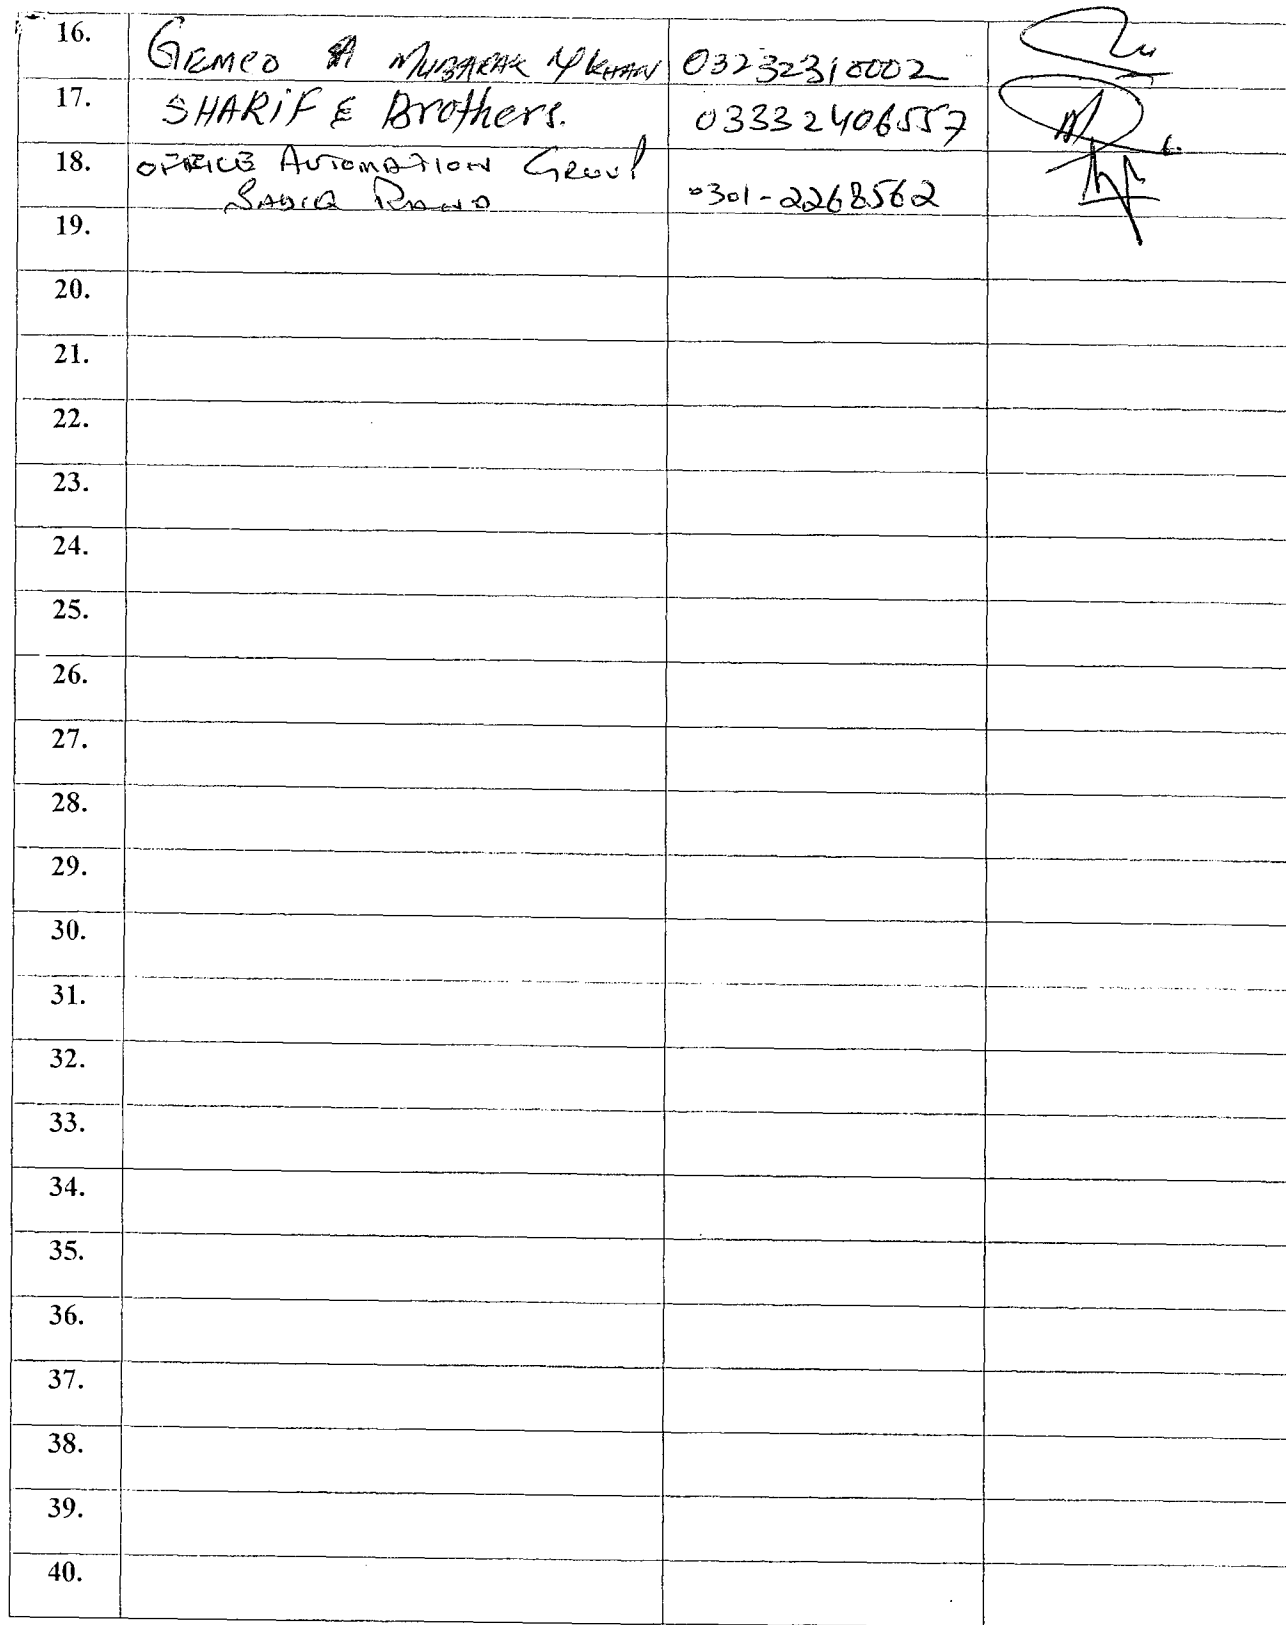 16. GEMCO MUBARAK Y KHAN 03232310002
17. SHARIF & Brothers. 03332406557
18. OFFICE AUTOMATION Group
SADIQ 0301-2268562
19.
20.
21.
22.
23.
24.
25.
26.
27.
28.
29.
30.
31.
32.
33.
34.
35.
36.
37.
38.
39.
40.